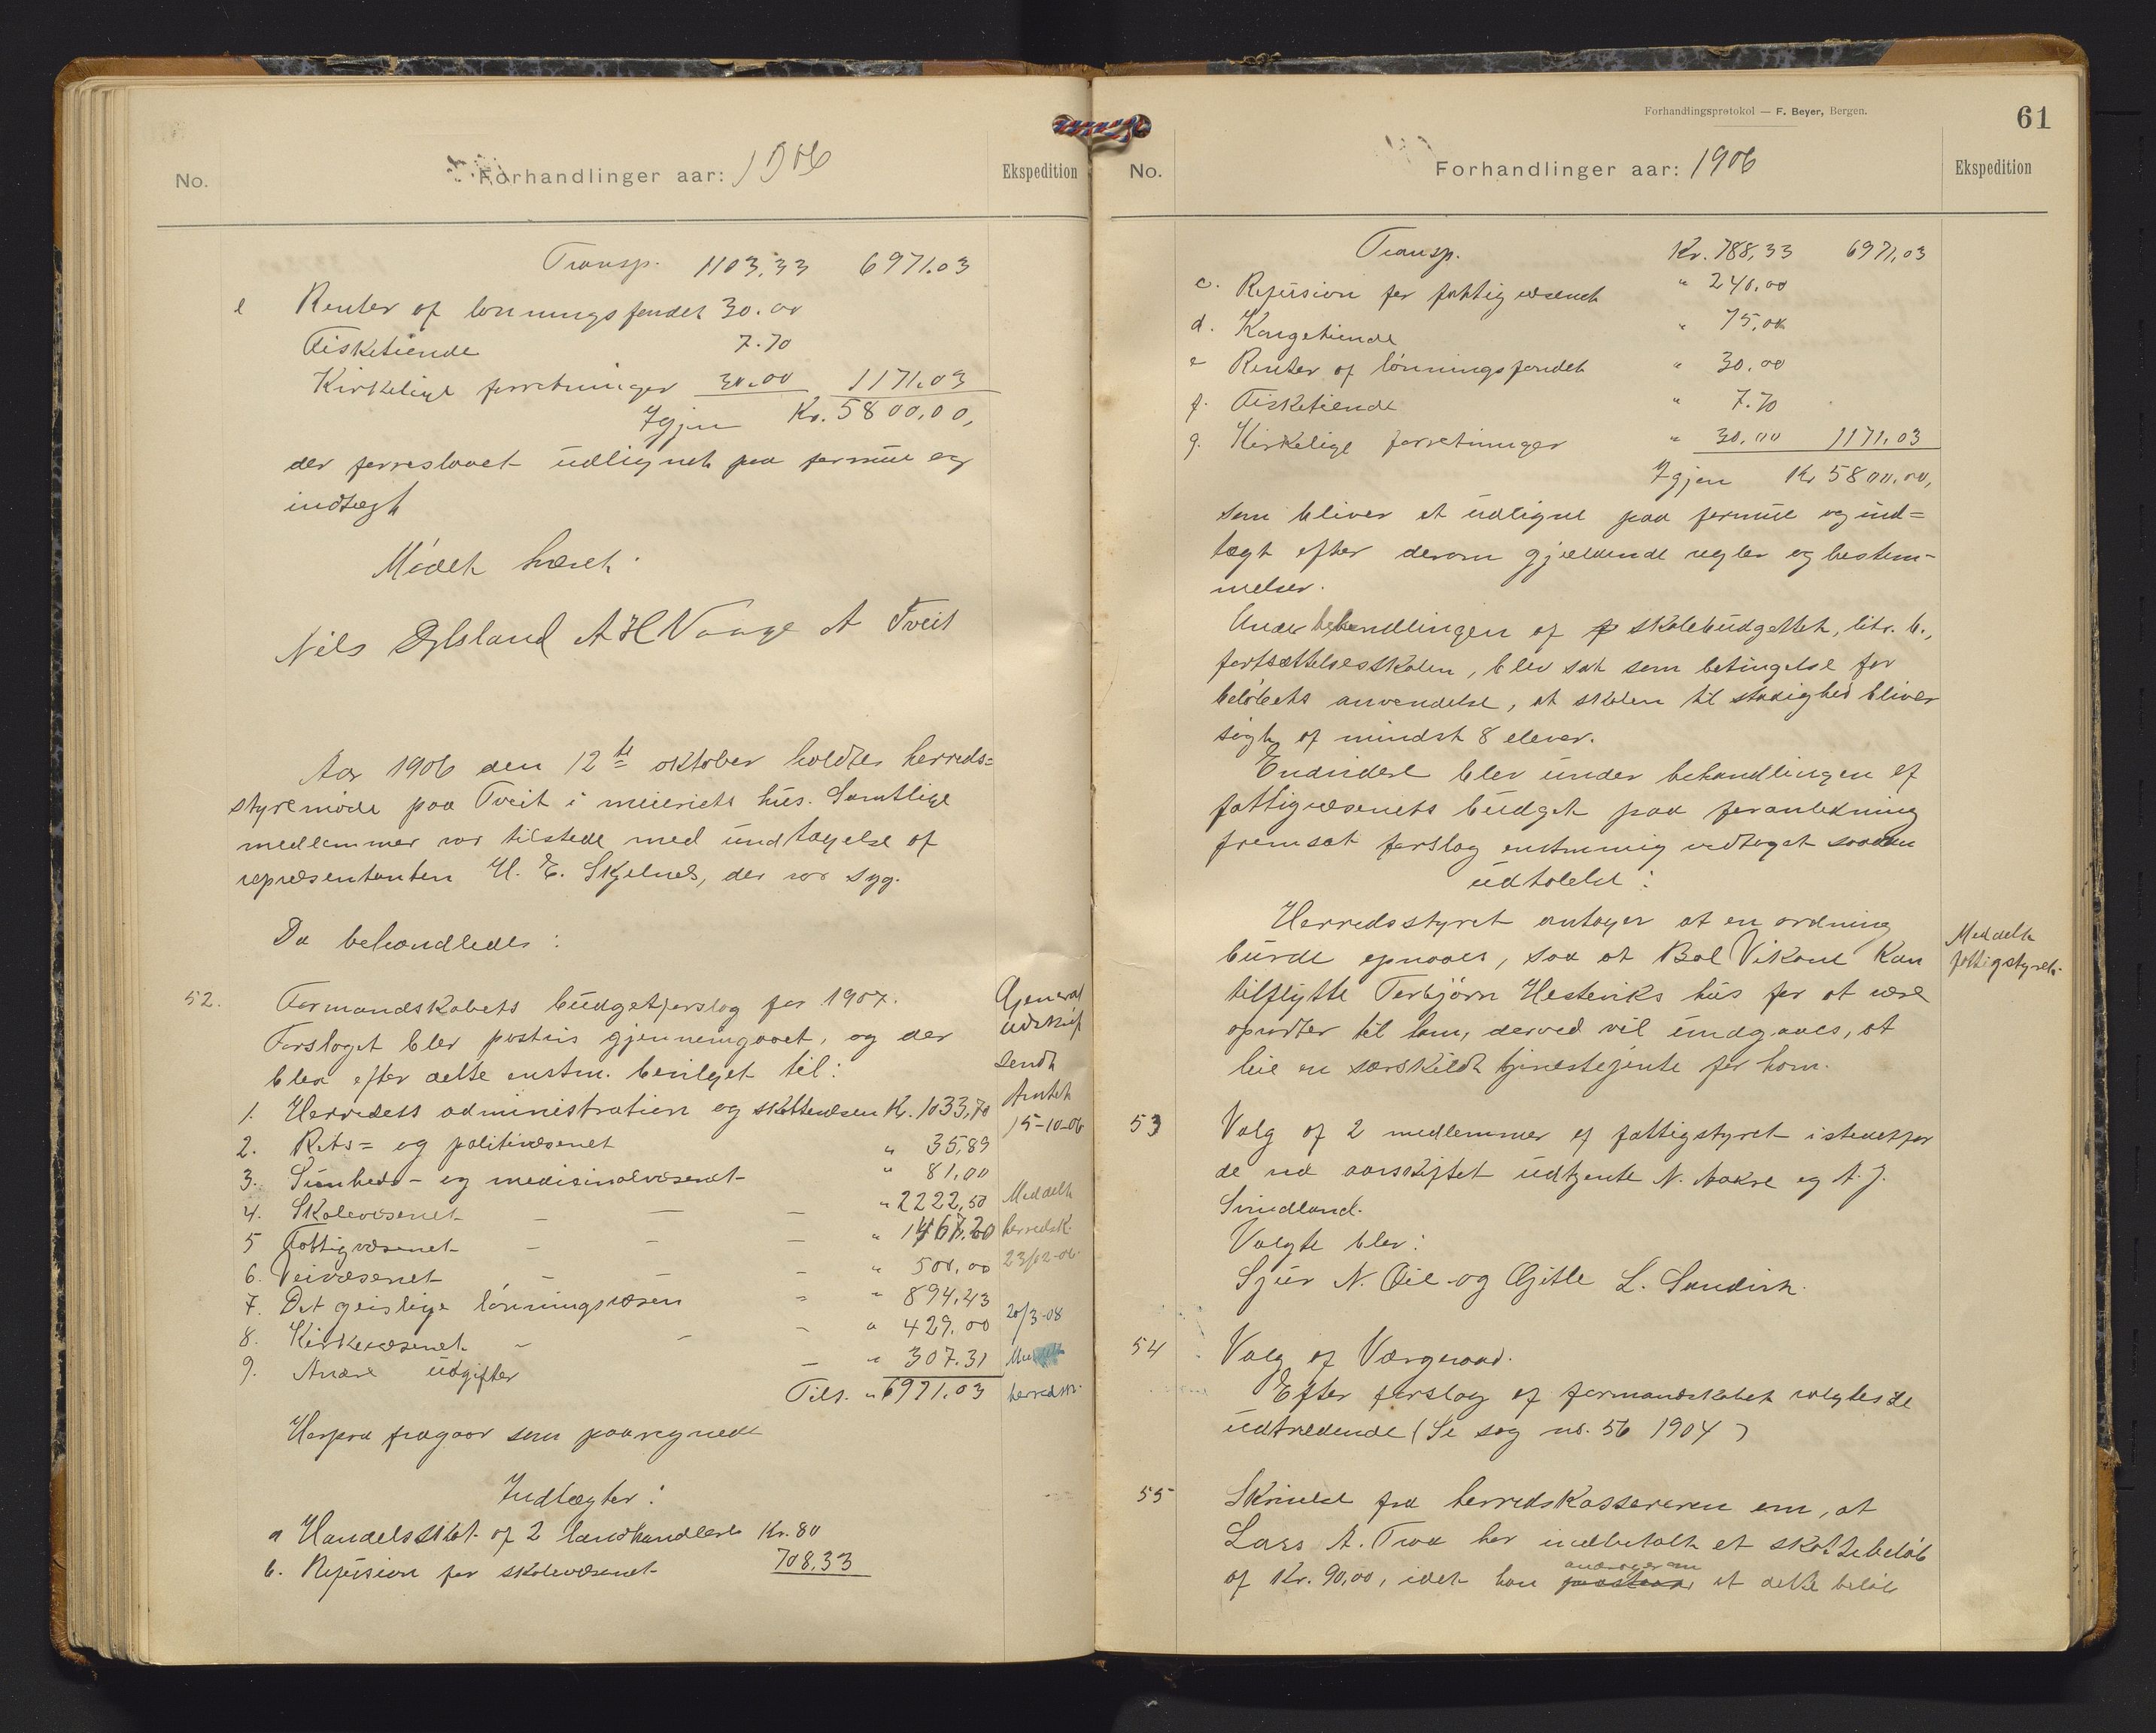 No.
Forhandlinger aar: 1906
Ekspedition
Transp. 1103,33 6971.03
e Renter af lønningsfondet 30.00
Fisketiende 7.70
Kirkelige forretninger 30.00 1171.03
Igjen Kr. 5800,00,
der forreslaaet udlignet paa formue og
indtægt
Mødet hævet.
Nils Øglænd A H Vaage A Tveit
Aar 1906 den 12te oktober holdtes herreds=
styremøde paa Tveit i meieriets hus. Samtlige
medlemmer var tilstede med undtagelse af
repræsentanten H. E. Skjelnes, der var syg.
Da behandledes:
52. Formandskabets budgetforslag for 1907.
Forslaget blev postvis gjennemgaaet, og der
blev efter dette enstm. bevilget til:
1. Herredets administration og skattevæsen Kr. 1033,70
2. Rets= og politivæsenet " 35,89
3. Sunheds- og medisinalvæsenet " 81,00
4. Skolevæsenet - — — " 2222,50
5 Fattigvæsenet - - — " 1467.20
6. Veivæsenet — - " 500,00
7. Det geislige lønningsvæsen - " 894,43
8. Kirkevæsenet - - - " 429,00
9. Andre udgifter — " 307.31
Tils. " 6971.03
General
udskrift
sendt
Amtet
15-10-06
Meddelt
herredsk.
23/12-06.
20/3-08
herredsk.
Herpaa fragaar som paaregnede
Indtægter:
a Handelsskat af 2 landhandlere Kr. 80
b. Refusion for skolevæsenet 708,33
Forhandlingsprotokol — F. Beyer, Bergen.
61
No.
Forhandlinger aar: 1906
Ekspedition
Transp. Kr. 788,33 6971,03
c. Refusion for fattigvæsenet " 240,00
d. Kongetiende " 75,00
e Renter af lønningsfondet " 30,00
f. Fisketiende " 7.70
g. Kirkelige forretninger " 30,00 1171,03
Igjen Kr 5800,00,
som bliver at udligne paa formue og ind=
tægt efter derom gjældende regler og bestem-
melser.
Under behandlingen af skolebudgettet, litr. b.,
fortsættelsesskolen, blev sat som betingelse for
beløbets anvendelse, at skolen til stadighed bliver
søgt af mindst 8 elever.
Endvidere blev under behandlingen af
fattigvæsenets budget paa foranledning
fremsat forslag enstemmig vedtaget saadan
udtalelse:
Herredsstyret antager at en ordning
burde opnaaes, saa at Bol Vikane kan
tilflytte Torbjørn Hesteviks hus for at være
oparter til ham, derved vil undgaaes, at
leie en særskildt tjenestejente for ham.
Meddelt
fattigstyret.
53 Valg af 2 medlemmer af fattigstyret istedetfor
de ved aarsskiftet udtjente N. Aakre og A. J.
Svindland.
Valgte blev:
Sjur N. Øie og Gitle L. Sandvik.
54 Valg af Værgeraad.
Efter forslag af formandskabet valgtes de
udtrædende (Se sag no. 56 1904)
55 Skrivelse fra herredskassereren om, at
Lars A. Traa har indbetalt et skattebeløb
af Kr. 90,00, idet han andrager om at dette beløb